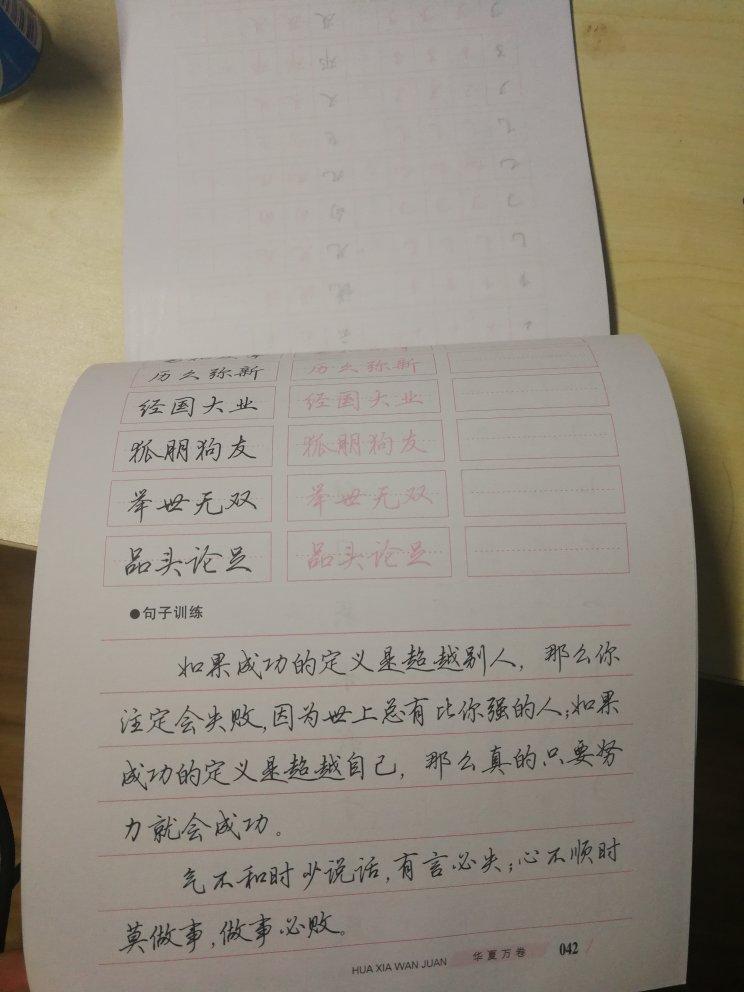 历久弥新 历久弥新
经国大业 经国大业
狐朋狗友 狐朋狗友
举世无双 举世无双
品头论足 品头论足
●句子训练
如果成功的定义是超越别人，那么你
注定会失败，因为世上总有比你强的人；如果
成功的定义是超越自己，那么真的只要努
力就会成功。
气不和时少说话，有言必失；心不顺时
莫做事，做事必败。
HUA XIA WAN JUAN 华夏万卷 042